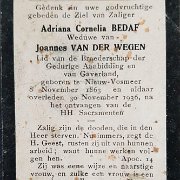 Gedenk in uwe godvruchtige
gebeden de Ziel van Zaliger
Adriana Cornelia BEDAF
Weduwe van
Joannes VAN DER WEGEN
Lid van de Broederschap der
Gedurige Aanbidding en
van Gaverland,
geboren te Nieuw-Vosmeer
8 November 1865 en aldaar
overleden 30 November 1936, na
het ontvangen van de
HH Sacramenten
Zalig zijn de dooden, die in den
Heer sterven. Nu immers, zegt de
H. Geest, rusten zij uit van hunnen
arbeid; want hunne werken volgen
hen. Apoc. 14
Zij was eene wijze en naarstige
vrouw, en zulke een vrouw is een